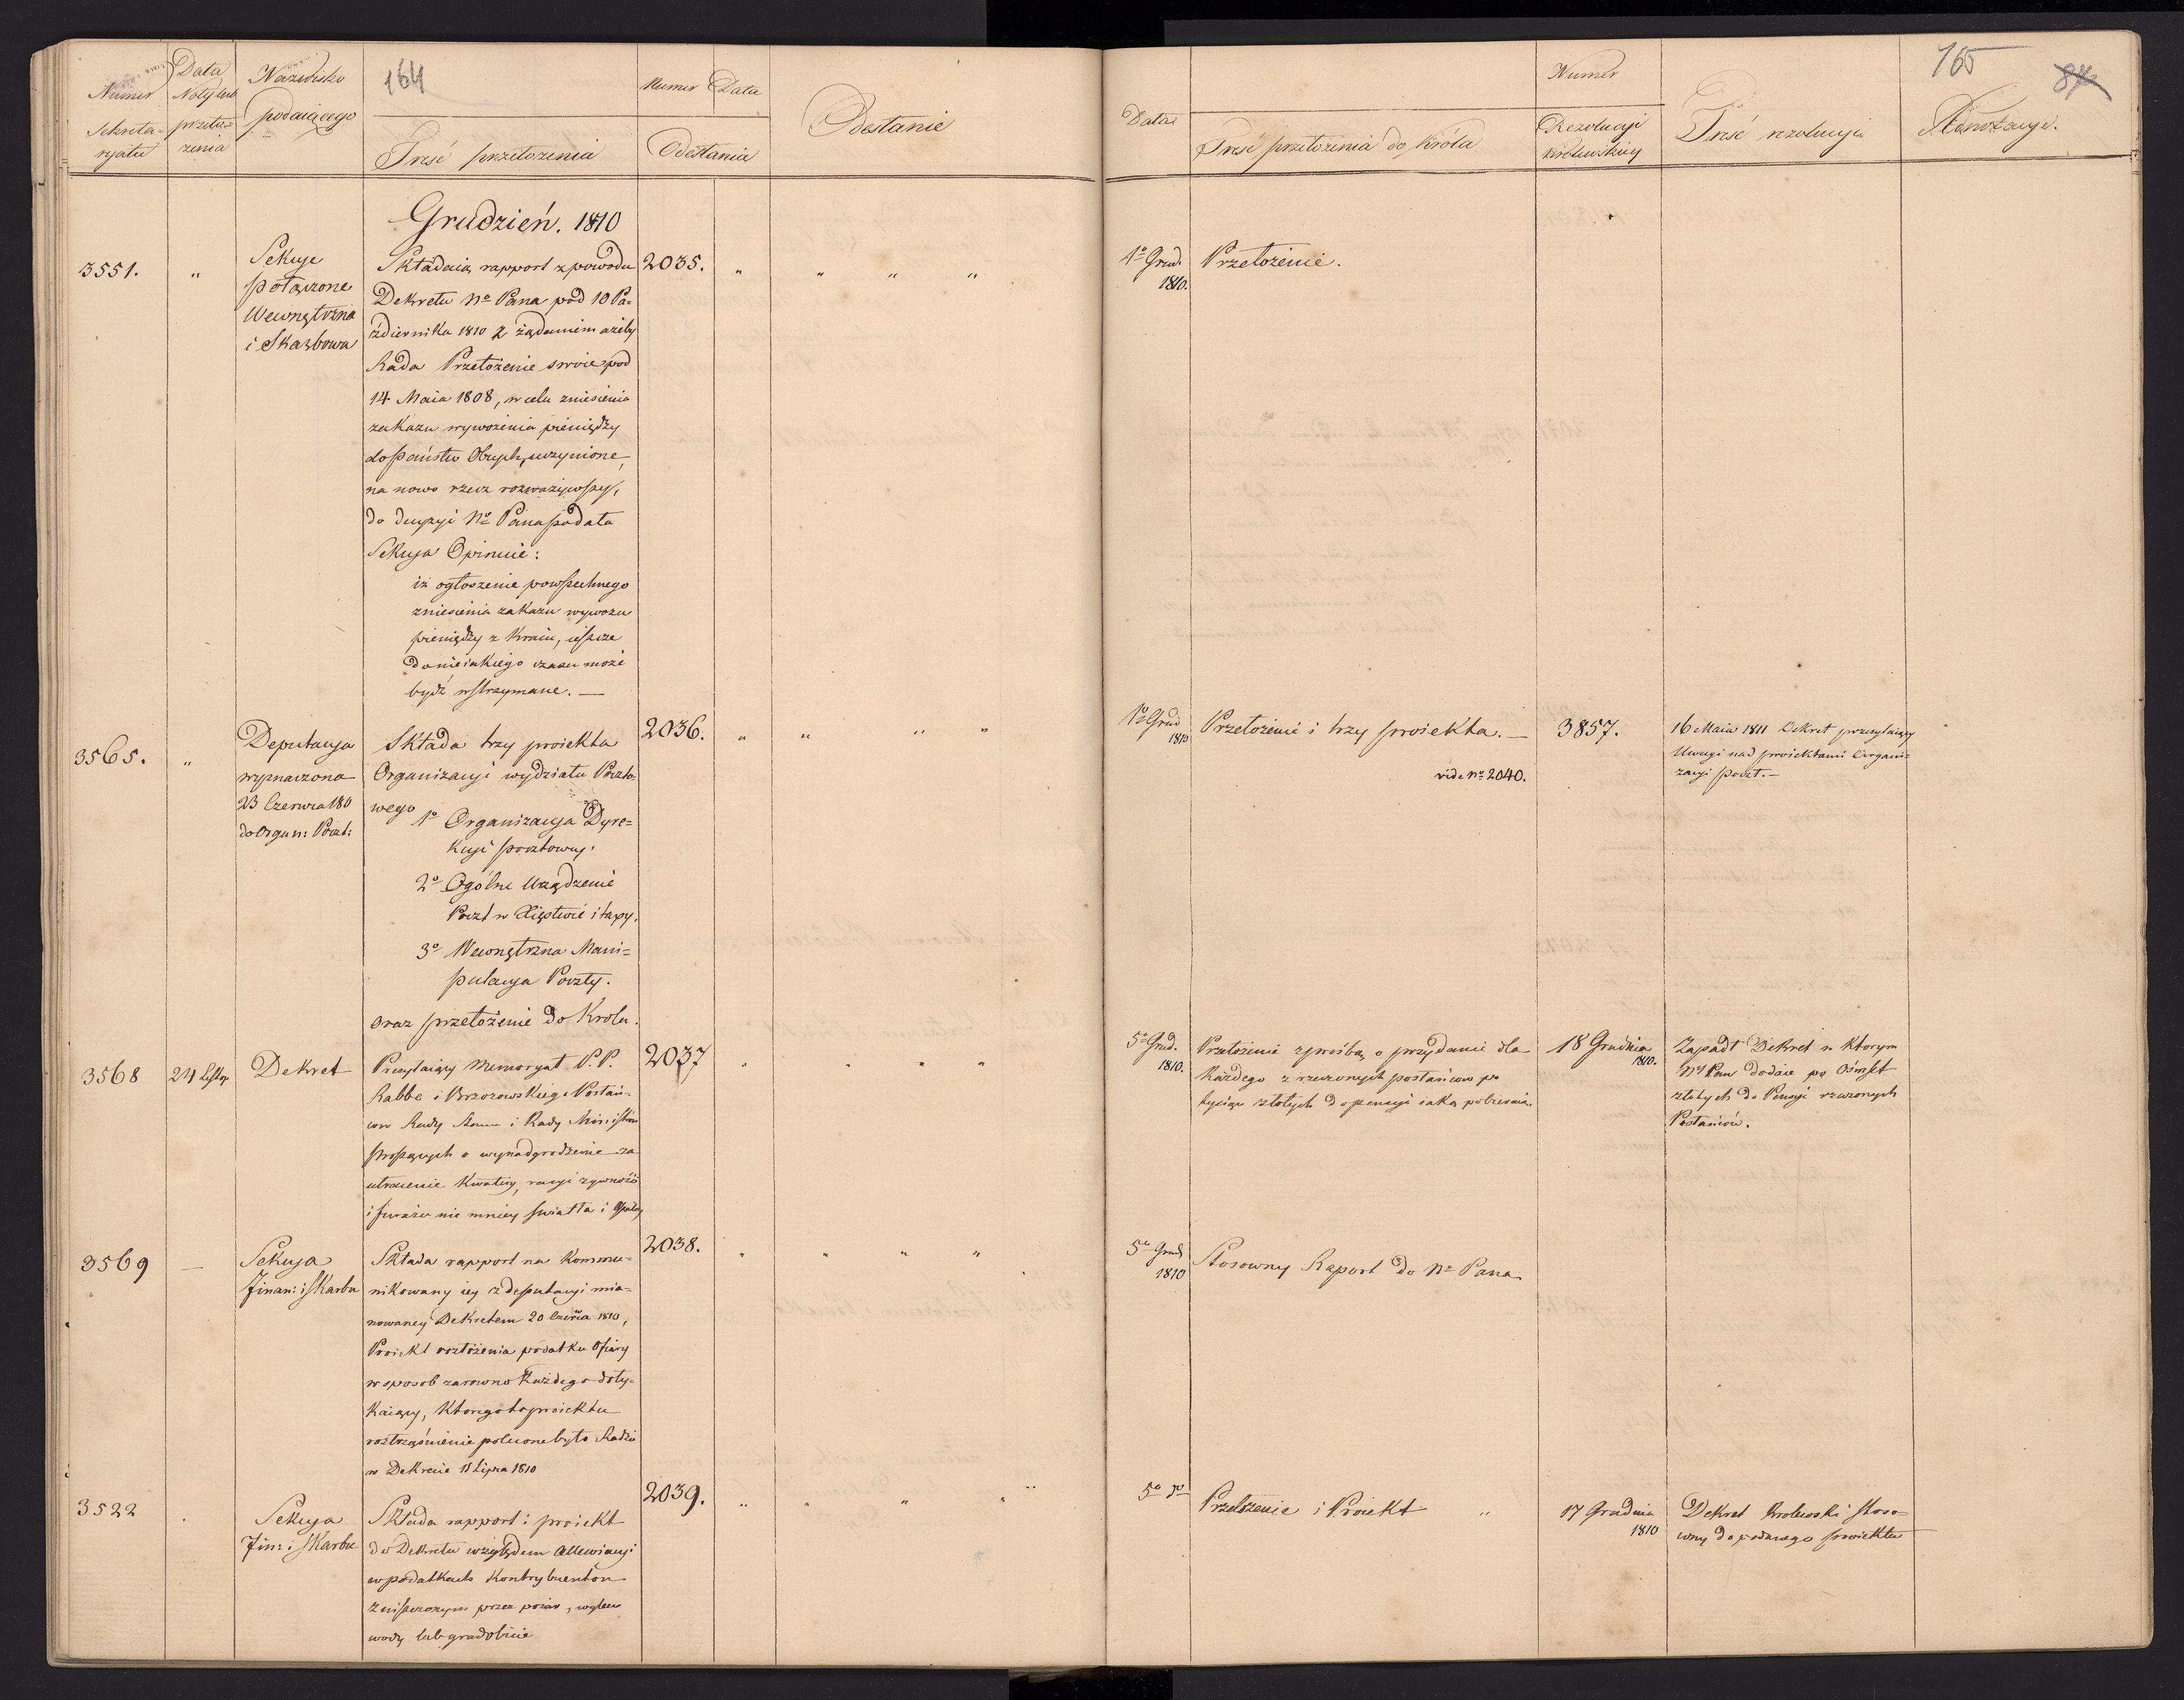 164
165
84
Numer
Sekreta=
ryatu
Data
Noty lub
przeło=
żenia
Nazwisko
podaiącego
Treść przełożenia
Numer Data
Odesłania
Odesłanie
Data
Treść przełożenia do Króla
Numer
Rezolucyi
królewskiey
Treść rezolucyi
Adnotacye.
Grudzień. 1810
3551.
"
Sekcye
połączone
Wewnętrzna
i Skarbowa
Składaią rapport z powodu
Dekretu Nº Pana pod 10 Pa=
ździernika 1810 z żądaniem ażeby
Rada Przełożenie swoie pod
14 Maia 1808, w celu zniesienia
zakazu wywożenia pieniędzy
do Państw Obcych, uczynione,
na nowo rzecz rozważywszy,
do decyzyi Nº Pana podała
Sekcya Opiniuie:
iż ogłoszenie powszechnego
zniesienia zakazu wywozu
pieniędzy z Kraiu, ieszcze
do nieiakiego czasu może
bydź wstrzymane. —
2035.
" " " "
1º Grud.
1810.
Przełożenie.
3565.
"
Deputacya
wyznaczona
23 Czerwca 180
do Organ: Poczt:
Składa trzy proiekta
Organizacyi wydziału Poczto=
wego
1º Organizacya Dyre=
kcyi pocztowey.
2º Ogólne Urządzenie
Poczt w Xięstwie i taxy.
3º Wewnętrzna Mani=
pulacya Poczty.
oraz przełożenie do Krola.
2036.
" " " "
1º Grud
1810
Przełożenie i trzy proiekta. —
vide nº 2040.
3857.
16 Maia 1811 Dekret przesyłaiący
Uwagi nad proiektami Organi=
zacyi poczt. —
3568
24 Listop
Dekret
Przesyłaiący Memoryał P. P.
Rabbe i Brzozowskiego Posłań=
ców Rady Stanu i Rady Ministrów
proszących o wynadgrodzenie za
utracenie Kwatery, racyi żywności
i furażu nie mniey światła i Opału
2037
" " " "
5º Grud.
1810.
Przełożenie z prośbą o przydanie dla
każdego z rzeczonych posłańcow po
tysiąc złotych do pensyi iaką pobieraią.
18 Grudnia
1810.
Zapadł Dekret w ktorym
Nº Pan dodaie po Ośmset
złotych do Pensyi rzeczonych
Posłańców.
3569
—
Sekcya
Finan: i Skarbu
Składa rapport na kommu=
nikowany iey z deputacyi mia=
nowaney Dekretem 20 Czerwca 1810,
Proiekt rozłożenia podatku Ofiary
w sposob zarowno Każdego doty=
kaiący, Ktorego to proiektu
roztrząśnienie polecone było Radzie
w Dekrecie 11 Lipca 1810
2038.
" " " "
5º Grud
1810
Stosowny Raport do Nº Pana
3522
.
Sekcya
Fin: i Skarbu
Składa rapport i proiekt
do Dekretu względem Allewiacyi
w podatkach Kontrybuentom
zniszczonym przez pożar, wylew
wody lub gradobicie
2039.
" " " "
5º dº
Przełożenie i Proiekt "
17 Grudnia
1810
Dekret Krolewski stoso=
wny do podanego proiektu